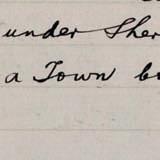 under Sher
a Town bu